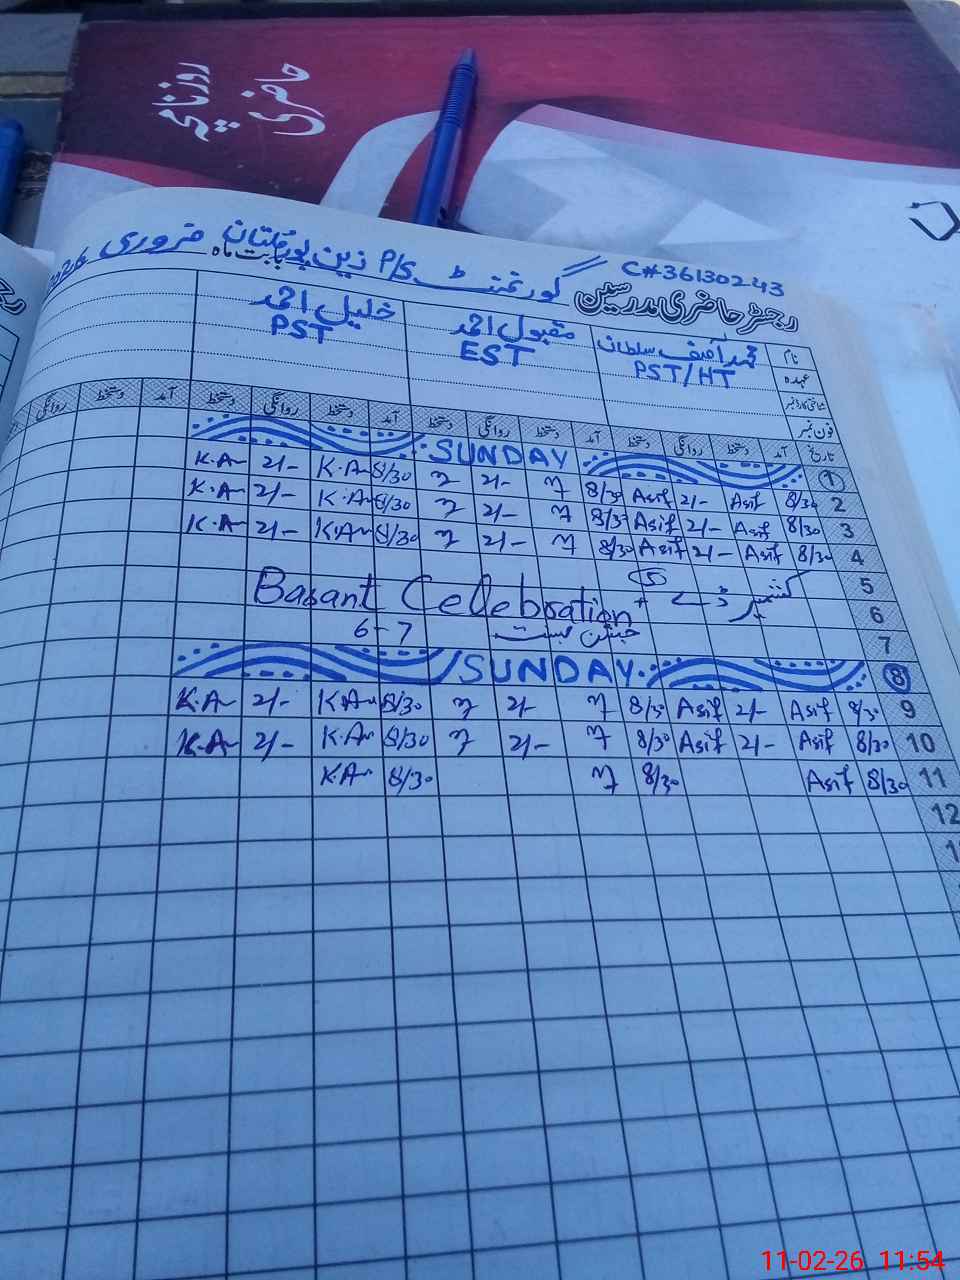 حاضری
روزنامچہ
C#36130243
گورنمنٹ P/S زین پور ملتان فروری 2026
رجسٹر حاضری مدرسین بابت ماہ
نام محمد آصف سلطان مقبول احمد خلیل احمد
عہدہ PST/HT EST PST
شناختی کارڈ نمبر
فون نمبر
تاریخ آمد دستخط روانگی دستخط آمد دستخط روانگی دستخط آمد دستخط روانگی دستخط آمد دستخط روانگی
1 SUNDAY
2 8/30 Asif 2/- Asif 8/30 2/- 8/30 K.A 2/- K.A
3 8/30 Asif 2/- Asif 8/30 2/- 8/30 K.A 2/- K.A
4 8/30 Asif 2/- Asif 8/30 2/- 8/30 K.A 2/- K.A
5 کشمیر ڈے 5
6 Basant Celebration
7 جشن بسنت 6-7
8 SUNDAY
9 8/30 Asif 2/- Asif 8/30 2/- 8/30 K.A 2/- K.A
10 8/30 Asif 2/- Asif 8/30 2/- 8/30 K.A 2/- K.A
11 8/30 Asif 8/30 8/30 K.A
12
11-02-26 11:54